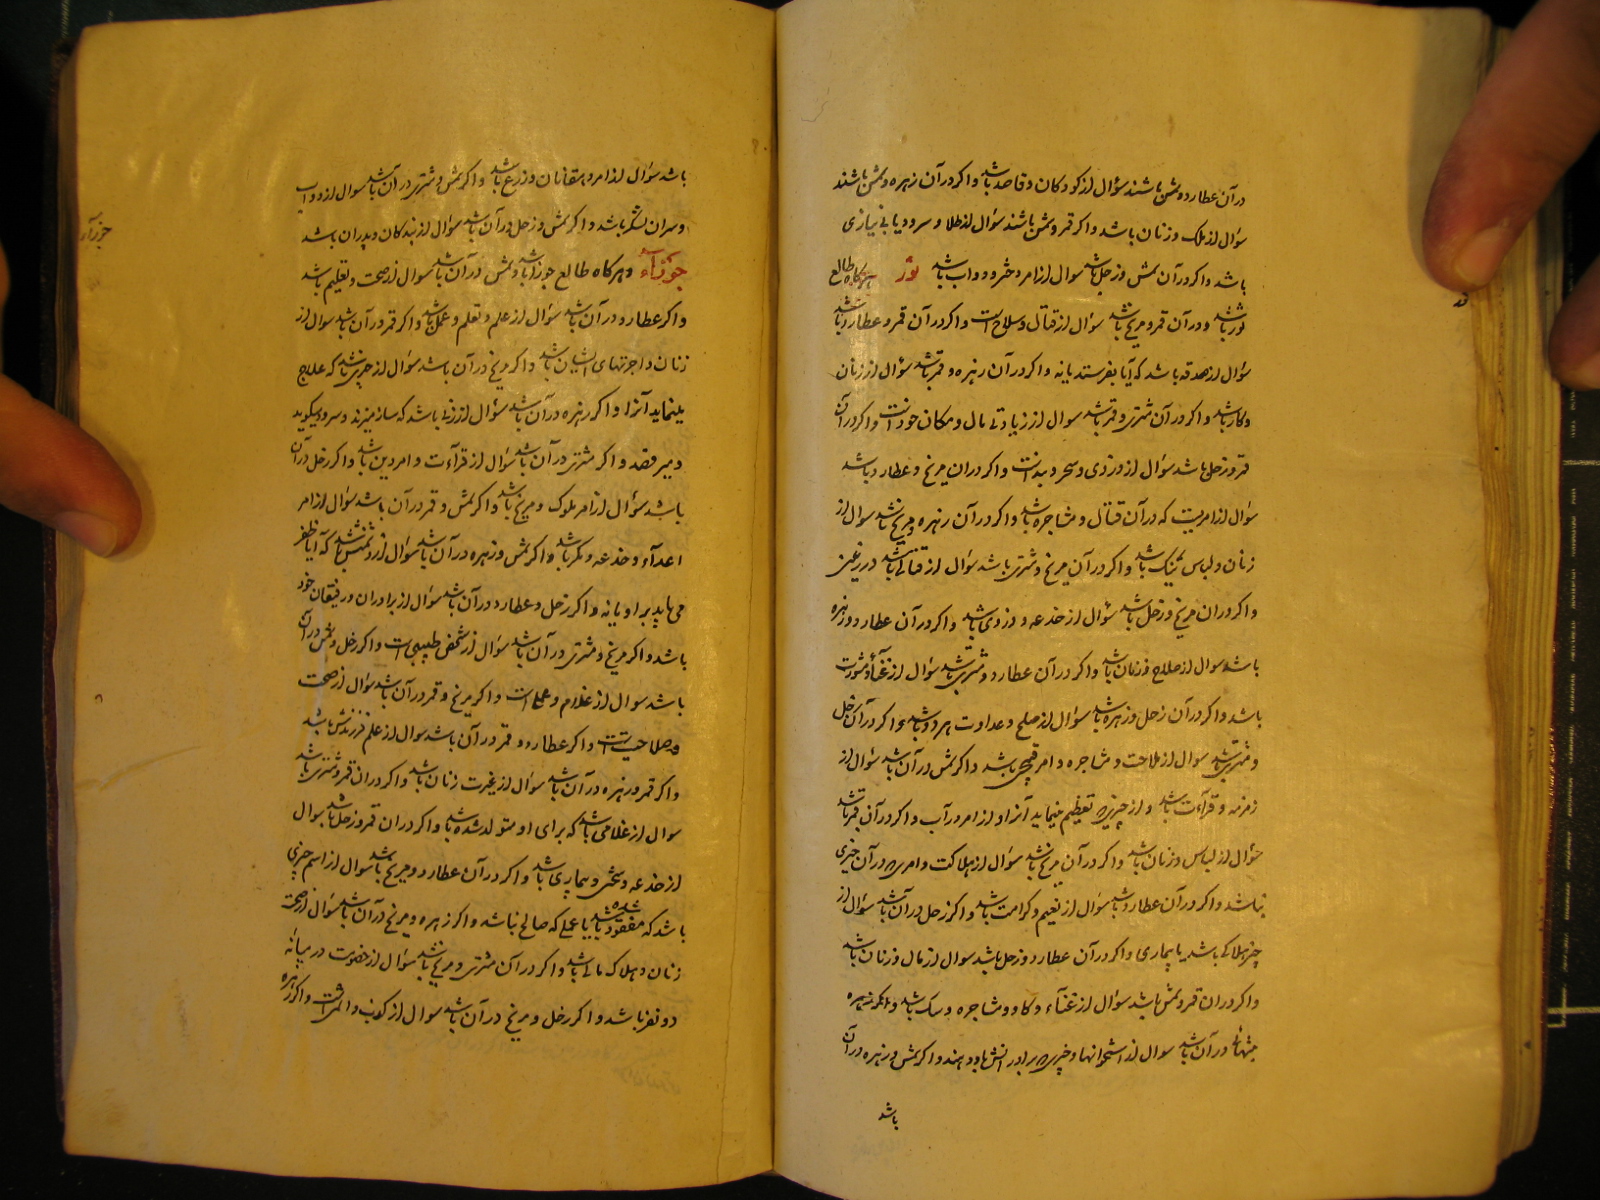 در آن عطارد و شمس باشند سؤال از کودکان و قاصد باشد و اکر در آن زهره و شمس باشند
سؤال از ملک و زنان باشد و اکر قمر و شمس باشند سؤال از طلا و سرود یا نی
باشد و اکر در آن شمس و زحل باشد سوال از امر و دواب باشد ثور هرکاه طالع
ثور باشد و در آن قمر و مریخ باشد سؤال از قتال و سلاح است و اکر در آن قمر و عطارد باشد
سؤال از صدقه باشد که آیا بفرستد یا نه و اکر در آن زهره و قمر باشد سؤال از زنان
و کار باشد و اکر در آن مشتری و قمر باشد سوال از زیادتی مال و مکان خود است و اکر در آن
قمر و زحل باشد سؤال از دزدی و سحر و و اکر در ان مریخ و عطارد باشد
سؤال از امریست که در آن قتال و مشاجره باشد و اکر در آن زهره و مریخ باشد سوال از
زنان و لباس نیک باشد و اکر در آن مریخ و مشتری باشد سؤال از قتالی باشد در
و اکر در ان مریخ و زحل باشد سؤال از خدعه و دزدی باشد و اکر در آن عطارد و زهره
باشد سوال از صلاح و زنان باشد و اکر در آن عطارد و مشتری باشد سؤال از غنا و مشورت
باشد و اکر در آن زحل و زهره باشد سؤال از صلح و عداوت هر دو باشد و اکر در آن زحل
و مشتری باشد سوال از ملاحت و مشاجره و امر قبیحی باشد و اکر شمس در آن باشد سؤال از
زمزمه و قرآءت باشد و از چیزی تعظیم مینماید آنرا و از امر در آب و اکر در آن قمر باشد
سؤال از لباس و زنان باشد و اکر در آن مریخ باشد سؤال از هلاکت و امری در آن چیزی
نباشد و اکر در آن عطارد باشد سؤال از نعیم و کرامت باشد و اکر زحل در آن باشد سؤال از
چیز هلاکی باشد یا بیماری و اکر در آن عطارد و زحل باشد سوال از مال و زنان باشد
و اکر در ان قمر و شمس باشد سوال از غنآء و کاو و مشاجره و سک باشد و اکر زهره
بتنهائی در آن باشد سوال از استخوانها و چیزی در و اکر شمس و زهره در آن
باشد
باشد سؤال از امر دهقانان و زرع باشد و اکر شمس و مشتری در آن باشد سوال از دواب
و سران لشکر باشد و اکر شمس و زحل در آن باشد سؤال از بندکان و پدران باشد
جوزآء و هرکاه طالع جوزا باشد و شمس در آن باشد سوال از صحت و تعلیم باشد
جوزآء
و اکر عطارد در آن باشد سؤال از علم و تعلم و عمل باشد و اکر قمر در آن باشد سوال از
زنان و اجرتهای ایشان باشد و اکر مریخ در آن باشد سؤال از چیزی باشد که علاج
مینماید آنرا و اکر زهره در آن باشد سؤال از زنی باشد که ساز میزند و سرود میکوید
و میرقصد و اکر مشتری در آن باشد سؤال از قرآءت و امر دین باشد و اکر زحل در آن
باشد سؤال از امر ملوک و مریخ باشد و اکر شمس و قمر در آن باشد سؤال از امر
اعدآء و خدعه و مکر باشد و اکر شمس و زهره در آن باشد سؤال از دشمنش باشد که آیا ظفر
می یابد بر او یا نه و اکر زحل و عطارد در آن باشد سؤال از برادران و رفیقان خود
باشد و اکر مریخ و مشتری در آن باشد سؤال از شخص طبیبی است و اکر زحل و شمس در آن
باشد سوال از غلام و است و اکر مریخ و قمر در آن باشد سؤال از صحت
و صلاحیت است و اکر عطارد و قمر در آن باشد سوال از علم فرزندش باشد
و اکر قمر و زهره در آن باشد سوال از غیرت زنان باشد و اکر در ان قمر و مشتری باشد
سوال از غلامی باشد که برای او متولد شده باشد و اکر در ان قمر و زحل باشد سوال
از خدعه و سختی و بیماری باشد و اکر در آن عطارد و مریخ باشد سوال از اسم چیزی
باشد که مفقود شده باشد یا عملی که صالح نباشد و اکر زهره و مریخ در آن باشد سؤال از صحت
زنان و هلاک مالی باشد و اکر در آن مشتری و مریخ باشد سؤال از خصومت در میانه
دو نفر باشد و اکر زحل و مریخ در آن باشد سوال از کذب و اکر زهره